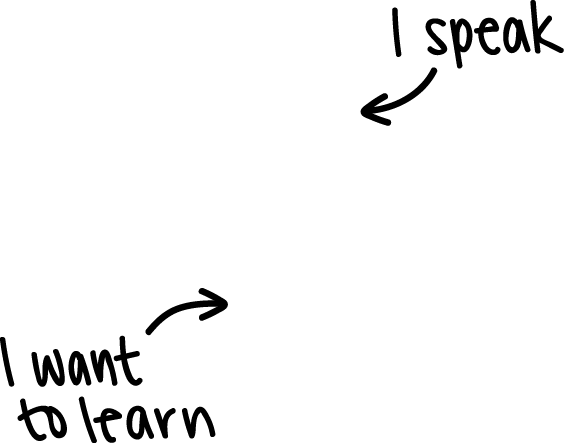 I speak
I want
to learn